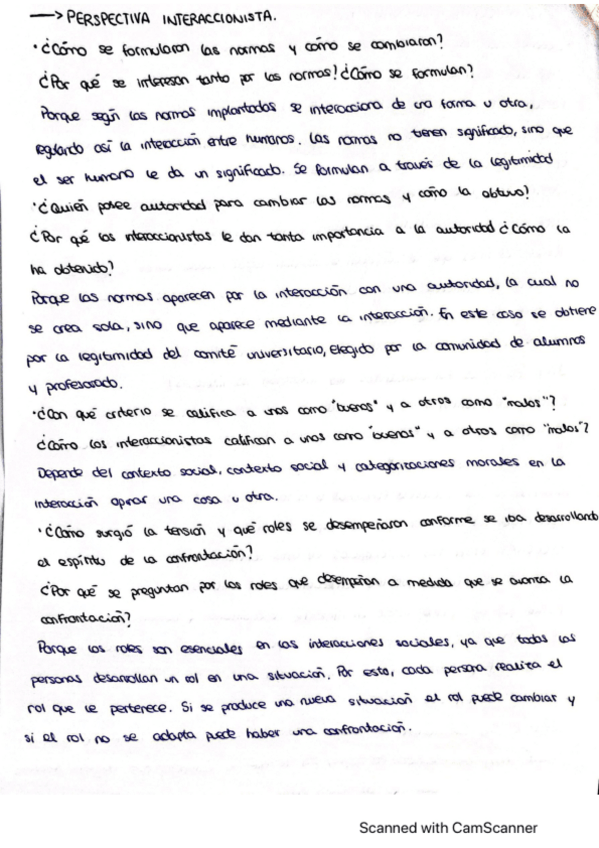 → PERSPECTIVA INTERACCIONISTA.
· ¿Cómo se formularon las normas y cómo se cambiaron?
¿Por qué se interesan tanto por las normas? ¿Cómo se formulan?
Porque según las normas implantadas se interacciona de una forma u otra,
regulando así la interacción entre humanos. Las normas no tienen significado, sino que
el ser humano le da un significado. Se formulan a través de la legitimidad
· ¿Quién posee autoridad para cambiar las normas y cómo la obtuvo?
¿Por qué los interaccionistas le dan tanta importancia a la autoridad ¿Cómo la
ha obtenido?
Porque las normas aparecen por la interacción con una autoridad, la cual no
se crea sola, sino que aparece mediante la interacción. En este caso se obtiene
por la legitimidad del comité universitario, elegido por la comunidad de alumnos
y profesorado.
· ¿Con qué criterio se califica a unos como "buenos" y a otros como "malos"?
¿Cómo los interaccionistas califican a unos como "buenos" y a otros como "malos"?
Depende del contexto social, contexto social y categorizaciones morales en la
interacción opinar una cosa u otra.
· ¿Cómo surgió la tensión y qué roles se desempeñaron conforme se iba desarrollando
el espíritu de la confrontación?
¿Por qué se preguntan por los roles que desempeñan a medida que se avanza la
confrontación?
Porque los roles son esenciales en las interacciones sociales, ya que todas las
personas desarrollan un rol en una situación. Por esto, cada persona realiza el
rol que le pertenece. Si se produce una nueva situación el rol puede cambiar y
si el rol no se adapta puede haber una confrontación.
Scanned with CamScanner